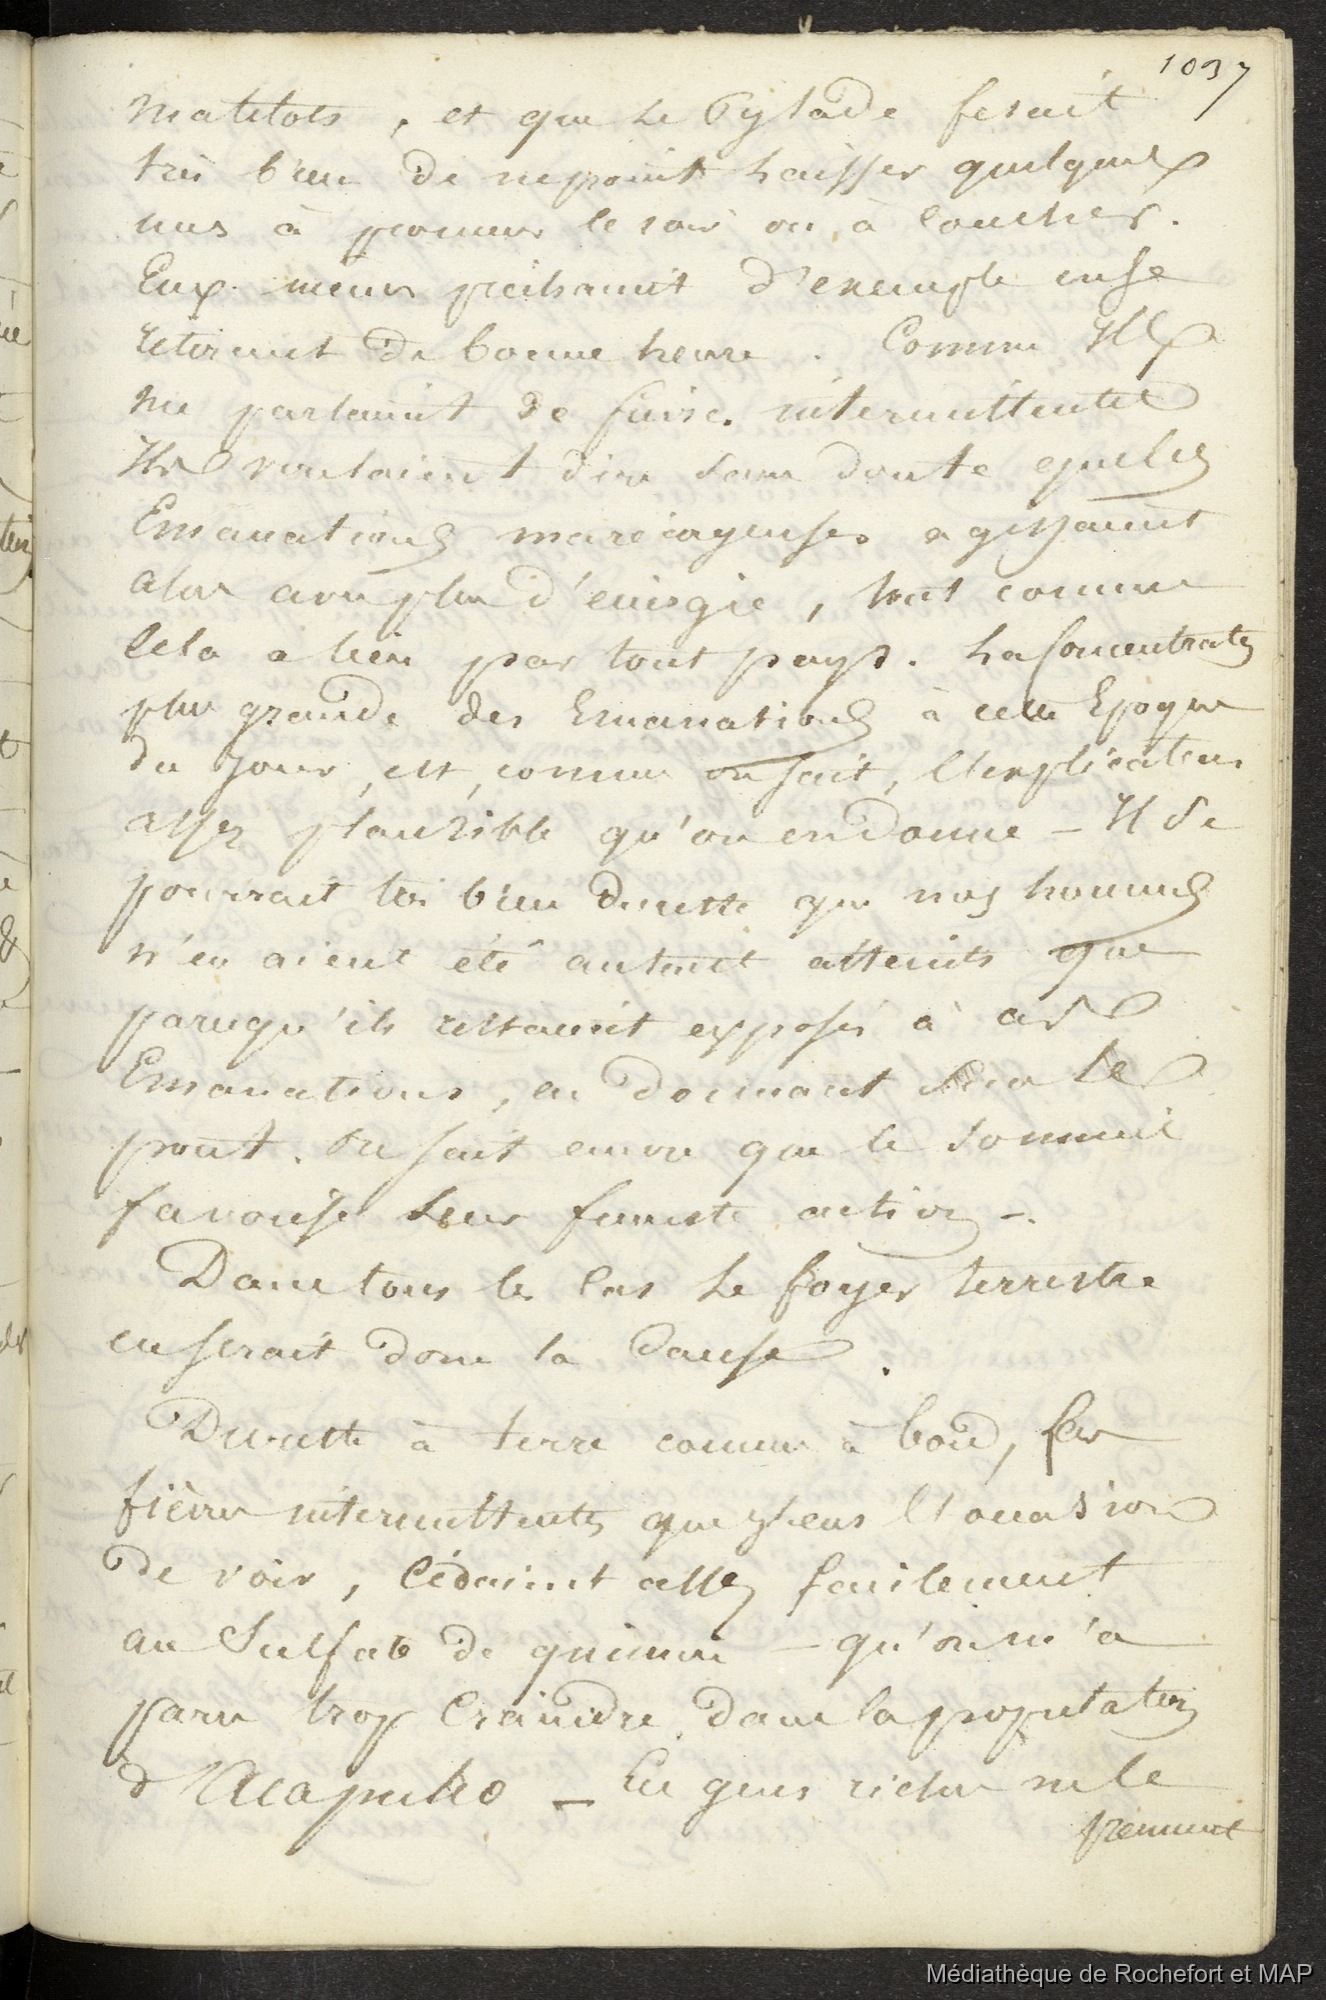 1037
matelots, et que le Pylade fesait
très bien de ne point laisser quelques
uns à terre le soir ou à coucher.
Eux-mêmes prêchaient d'exemple en se
retirant de bonne heure. Comme Ils
me parlaient de fièvres intermittentes
Ils voulaient dire sans doute que les
Emanations marécageuses agissaient
alors avec plus d'énergie, tout comme
cela a lieu par tout pays. La Concentration
plus grande des Emanations à cette Epoque
du jour, est, comme on sait, l'explication
assez plausible qu'on en donne - Il se
pourrait très bien du reste que nos hommes
n'en aient été autant atteints que
parcequ'ils restaient exposés à ces
Emanations, en dormant sur le
pont. On sait encore que le sommeil
favorise leur funeste action -.
Dans tous les Cas le foyer terrestre
en serait donc la Cause.
Du reste à terre comme à bord, les
fièvres intermittentes que j'eus l'occasion
de voir, cédaient assez facilement
au Sulfate de quinine - qu'on m'a
paru trop Craindre dans la population
d'Acapulco - Les gens riches ne le
prennent
Médiathèque de Rochefort et MAP